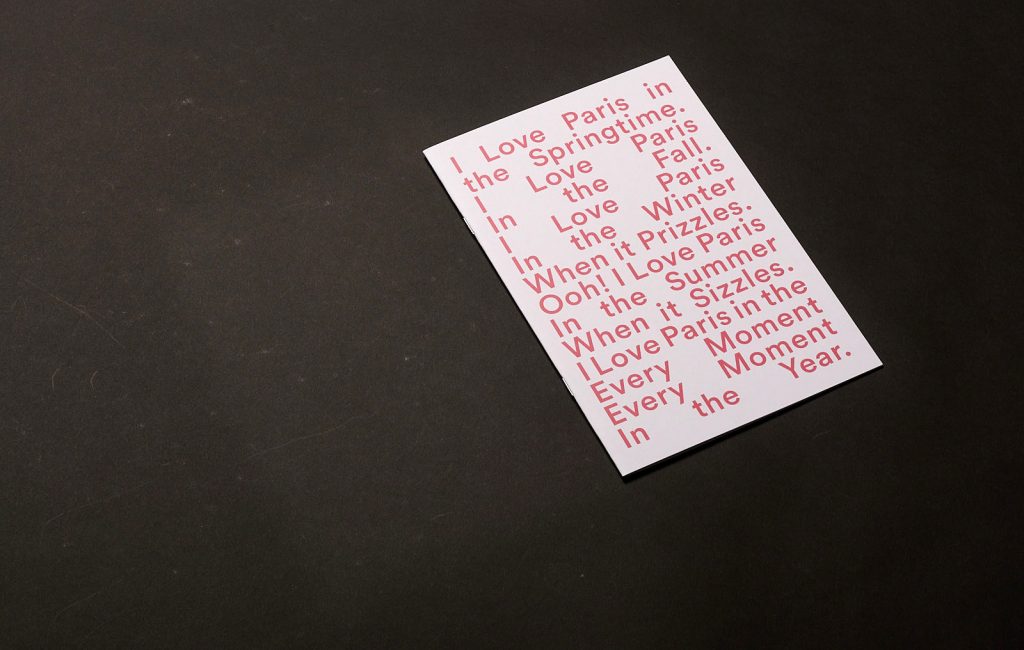 I Love Paris in
the Springtime.
I Love Paris
In the Fall.
I Love Paris
In the Winter
When it Prizzles.
Ooh! I Love Paris
In the Summer
When it Sizzles.
I Love Paris in the
Every Moment
Every Moment
In the Year.